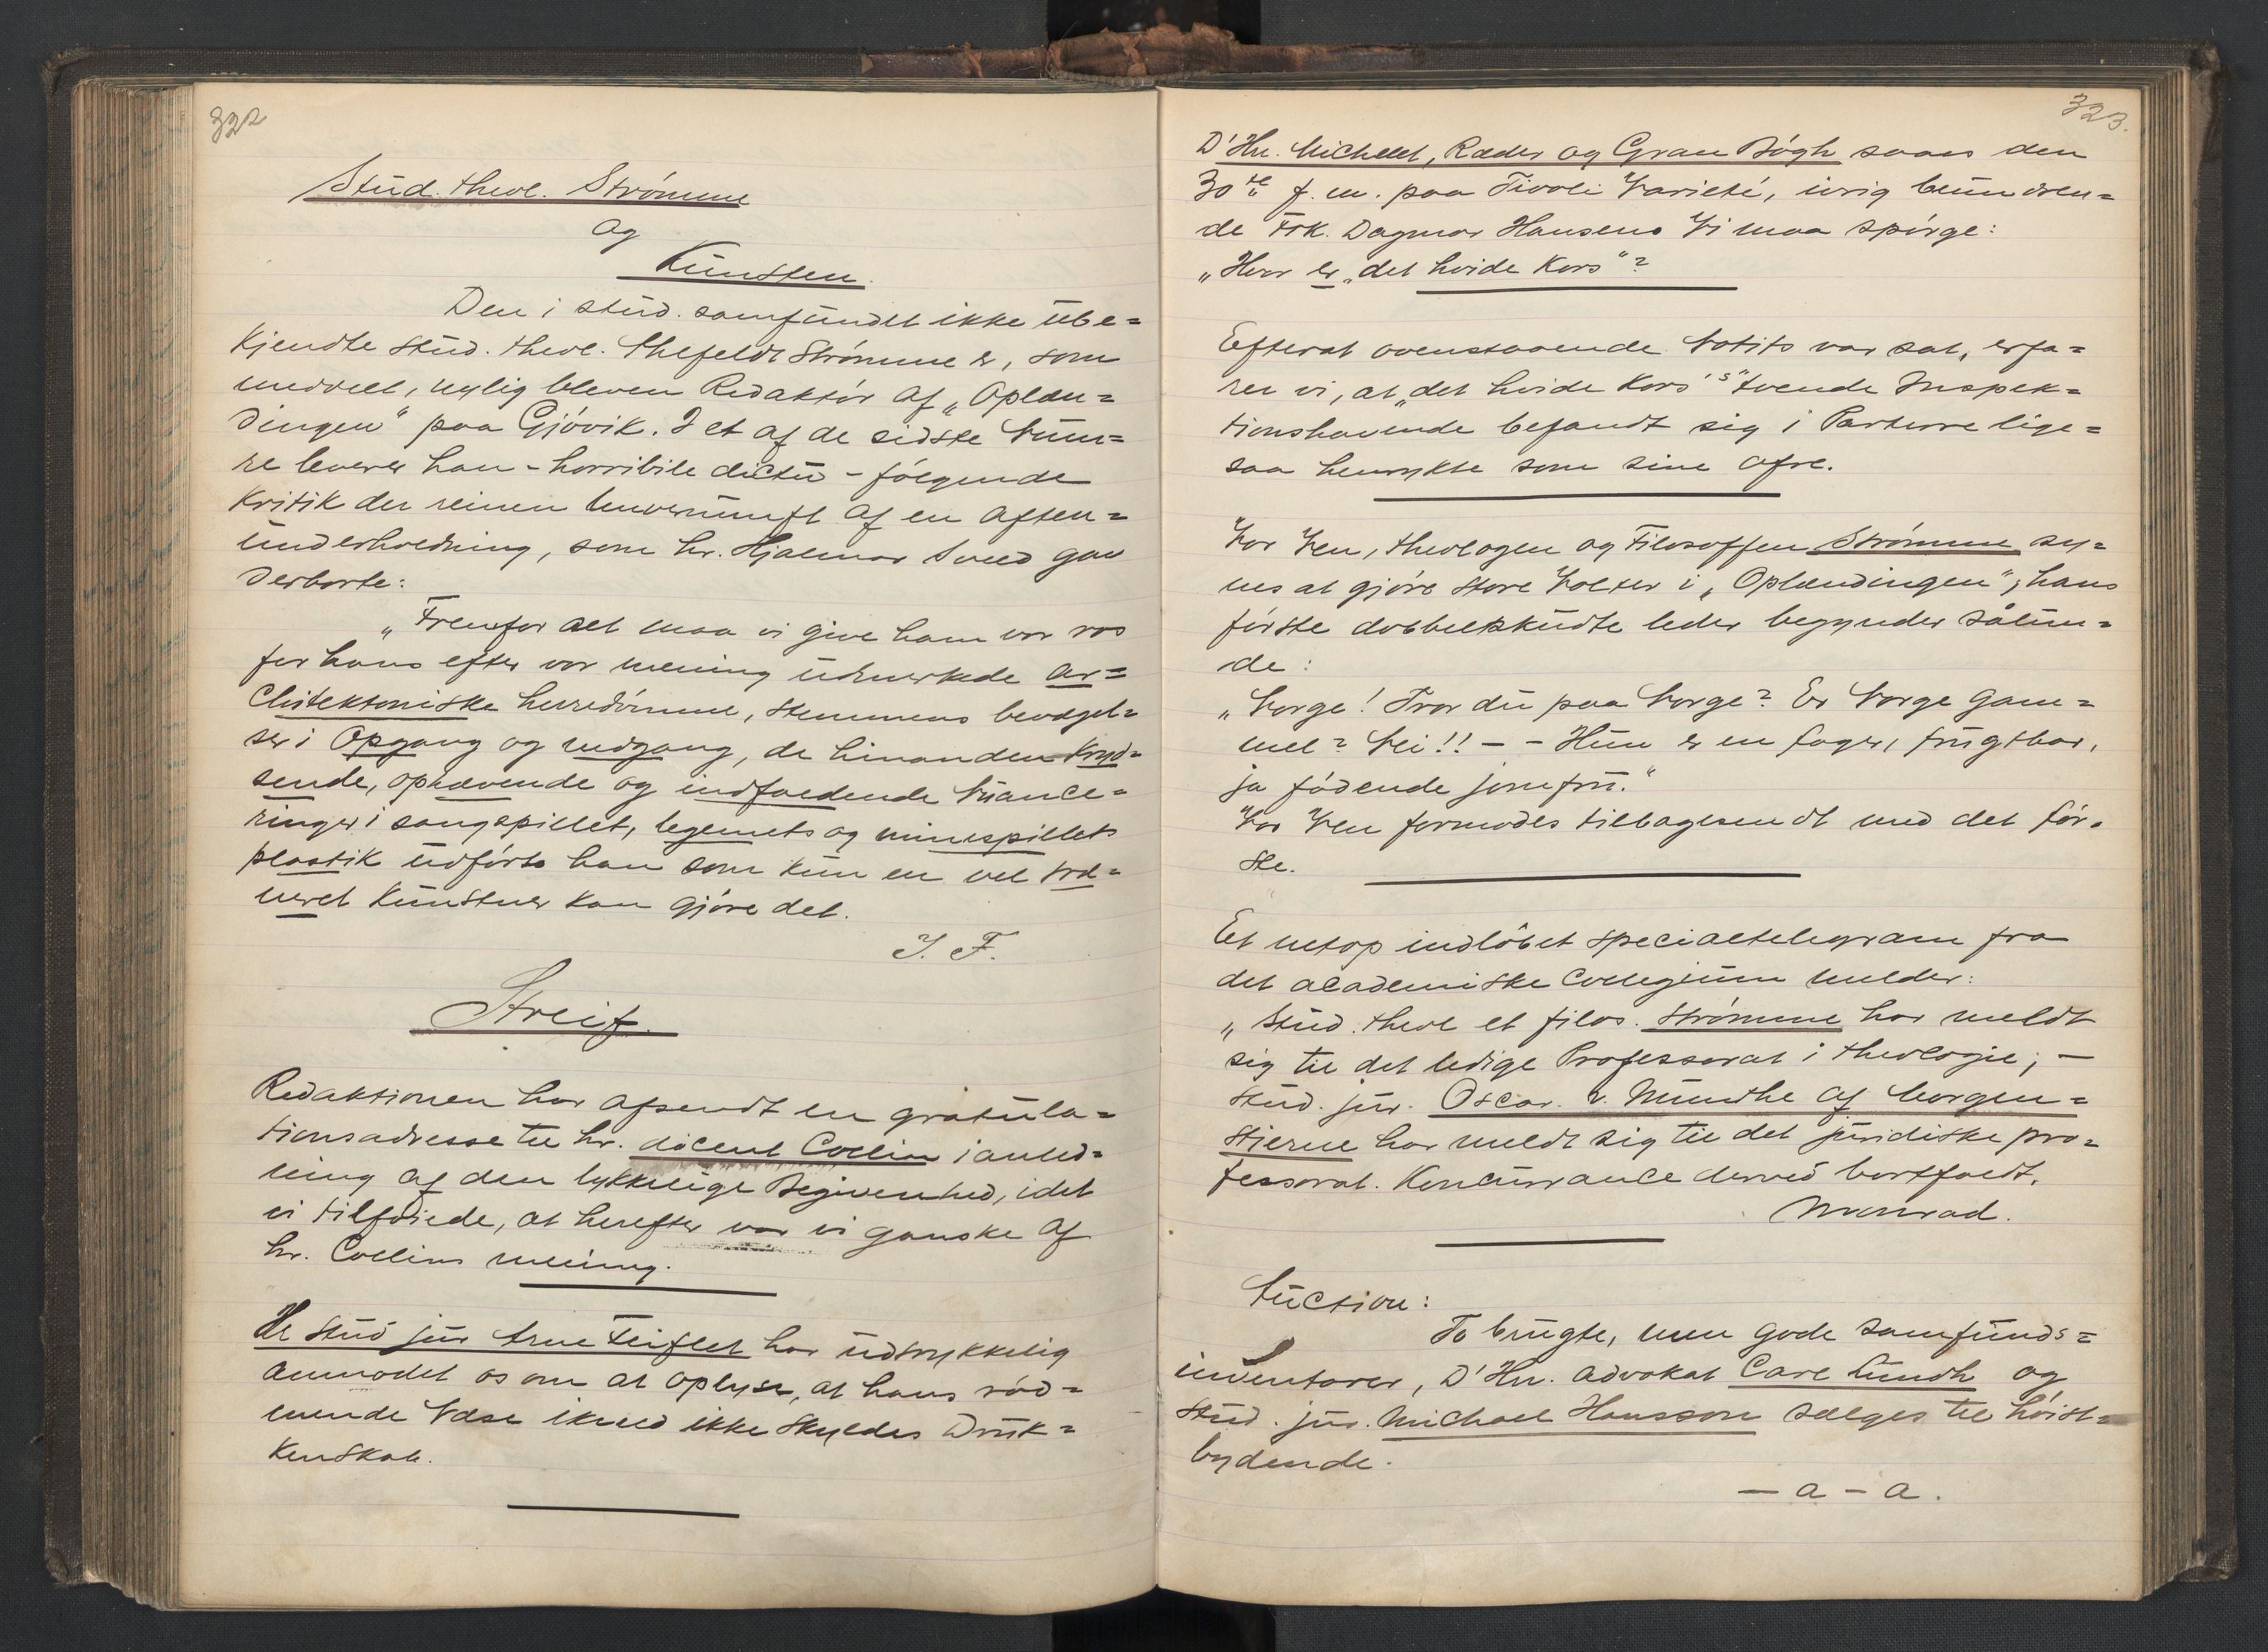 322
Stud. theol. Strømme
og
Kunsten.
Den i stud. samfundet ikke ube=
kjendte stud. theol. Ihlefeldt Strømme er, som
meddelt, nylig bleven Redaktør af „Oplæn=
dingen“ paa Gjövik. I et af de sidste Num=
re leverer han - horribile dictu - følgende
Kritik der reinen Unvernunft af en Aften=
underholdning, som hr. Hjalmar Sved gav
derborte:
„Fremfor alt maa vi give ham vor ros
for hans efter vor mening udmerkede ar=
chitektoniske herredømme, stemmens bevægel=
ser i Opgang og nedgang, de hinanden kryd=
sende, ophævende og indfoldende Nuance=
ringer i sangspillet, legemets og minespillets
plastik udførte han som kun en vel træ=
neret kunstner kan gjöre det.
J. F.
Streif.
Redaktionen har afsendt en gratula=
tionsadresse til hr. docent Collin i anled=
ning af den lykkelige Begivenhed, idet
vi tilføiede, at herefter var vi ganske af
hr. Collins mening.
Hr stud jur Arne Feiflet har udtrykkelig
anmodet os om at oplyse, at hans rød=
mende Næse ikveld ikke skyldes Druk=
kenskab.
323.
D'Hrr. Michelet, Ræder og Gran Bøgh saaes den
30te f. m. paa Tivoli Varieté, ivrig beundren=
de Frk. Dagmar Hansen. Vi maa spørge:
„Hvor er „det hvide Kors“?
Efterat ovenstaaende Notits var sat, erfa=
rer vi, at „det hvide Kors“'s tvende Inspek=
tionshavende befandt sig i Parterre lige=
saa henrykte som sine Ofre.
Vor Ven, theologen og Filosoffen Strømme sy=
nes at gjöre store Volter i „Oplændingen“; hans
første dobbeltskudte leder begynder sålun=
de:
„Norge! Tror du paa Norge? Er Norge gam=
mel? Nei!! - - Hun er en fager, frugtbar,
ja fødende jomfru.“
Vor Ven formodes tilbagesendt med det før=
ste.
Et netop indløbet specialtelegram fra
det academiske Collegium melder:
„Stud. theol et filos. Strømme har meldt
sig til det ledige Professorat i theologie; —
Stud. jur. Oscar v. Munthe af Morgen=
stierne har meldt sig til det juridiske pro=
fessorat. Koncurrance derved bortfaldt.
Monrad.
Auction:
To brugte, men gode samfunds=
inventarer, D'Hrr. advokat Carl Lundh og
Stud. jur. Michael Hansson sælges til høist=
bydende.
— a — a.